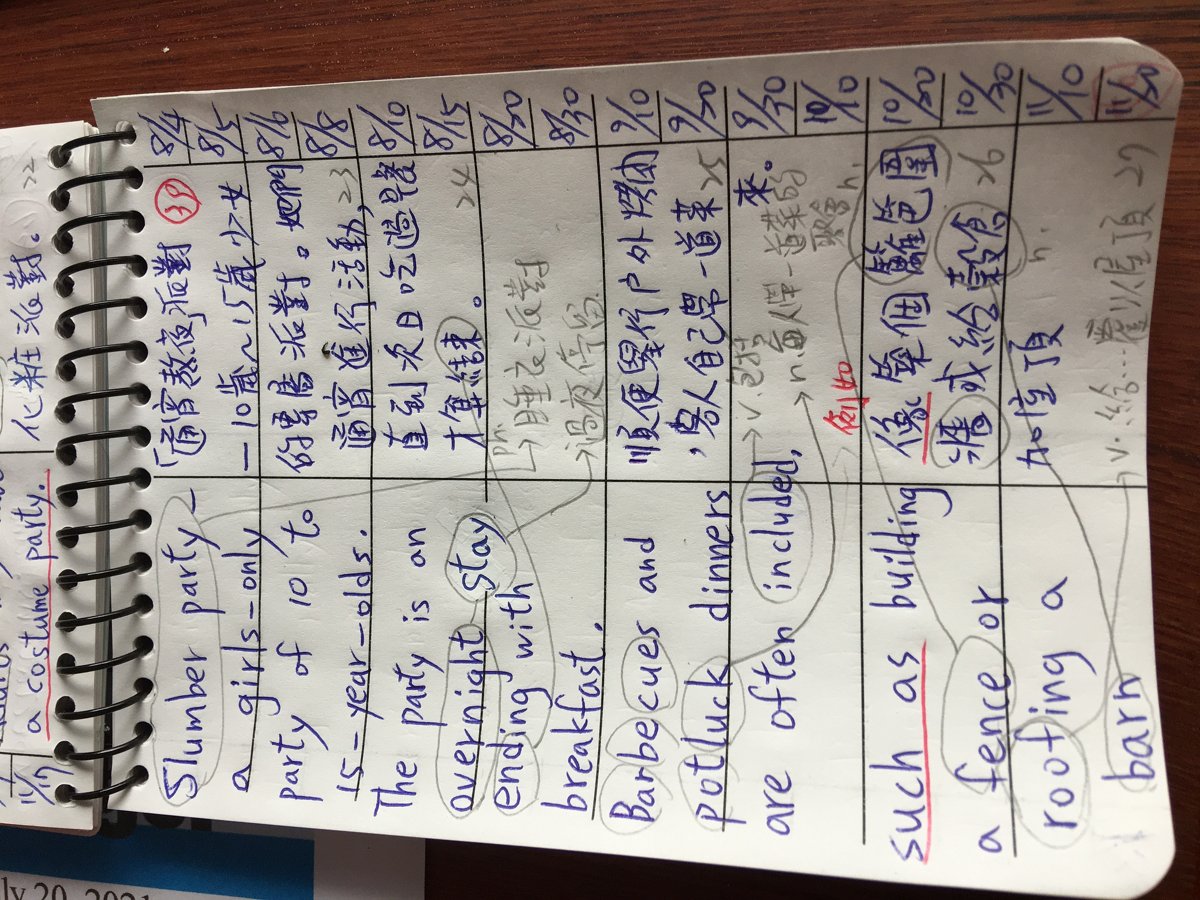 化粧派對。
22
a costume party.
11/17
8/4
8/5
8/6
8/8
8/10
8/15
8/20
8/30
9/10
9/20
9/30
10/10
10/20
10/30
11/10
11/20
「通宵熬夜」派對
39
—10歲~15歲少女
的專屬派對。她們
通宵進行活動,
23
直到次日吃過早餐
才算結束。
24
pn.
睡衣派對
過夜停留
順便舉行户外烤肉
,客人自己帶一道菜
25
來。
v.包括
n.每人伴一道菜的
聚會
例如
像築個籬笆圍
n.
牆或給穀倉
26
加屋頂
n.
v.給…覆以屋頂
27
Slumber party—
a girls-only
party of 10 to
15-year-olds.
The party is an
overnight stay
ending with
breakfast.
Barbecues and
potluck dinners
are often included,
such as building
a fence or
roofing a
barn
ly 20, 2021